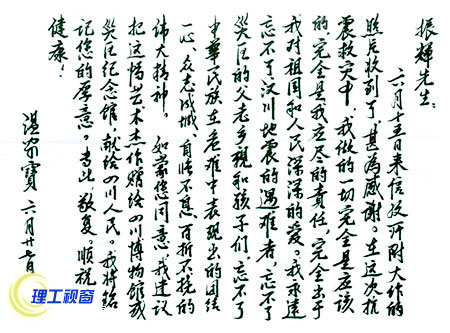 振輝先生：
六月十五日来信及所附大作的
照片收到了，甚為感谢。在这次抗
震救灾中，我做的一切完全是应该
的，完全是我应尽的责任，完全出于
我对祖国和人民深深的爱。我永遠
忘不了汶川地震的遇难者，忘不了
災区的父老乡親和孩子们，忘不了
中華民族在危难中表現出的团结
一心、众志成城、自強不息、百折不撓的
偉大精神。如蒙您同意，我建议
把这幅艺术杰作赠给四川博物馆或
災区纪念馆，献给四川人民。我将铭
记您的厚意。专此，敬复。顺祝
健康！
温家寶 六月
理工视窗